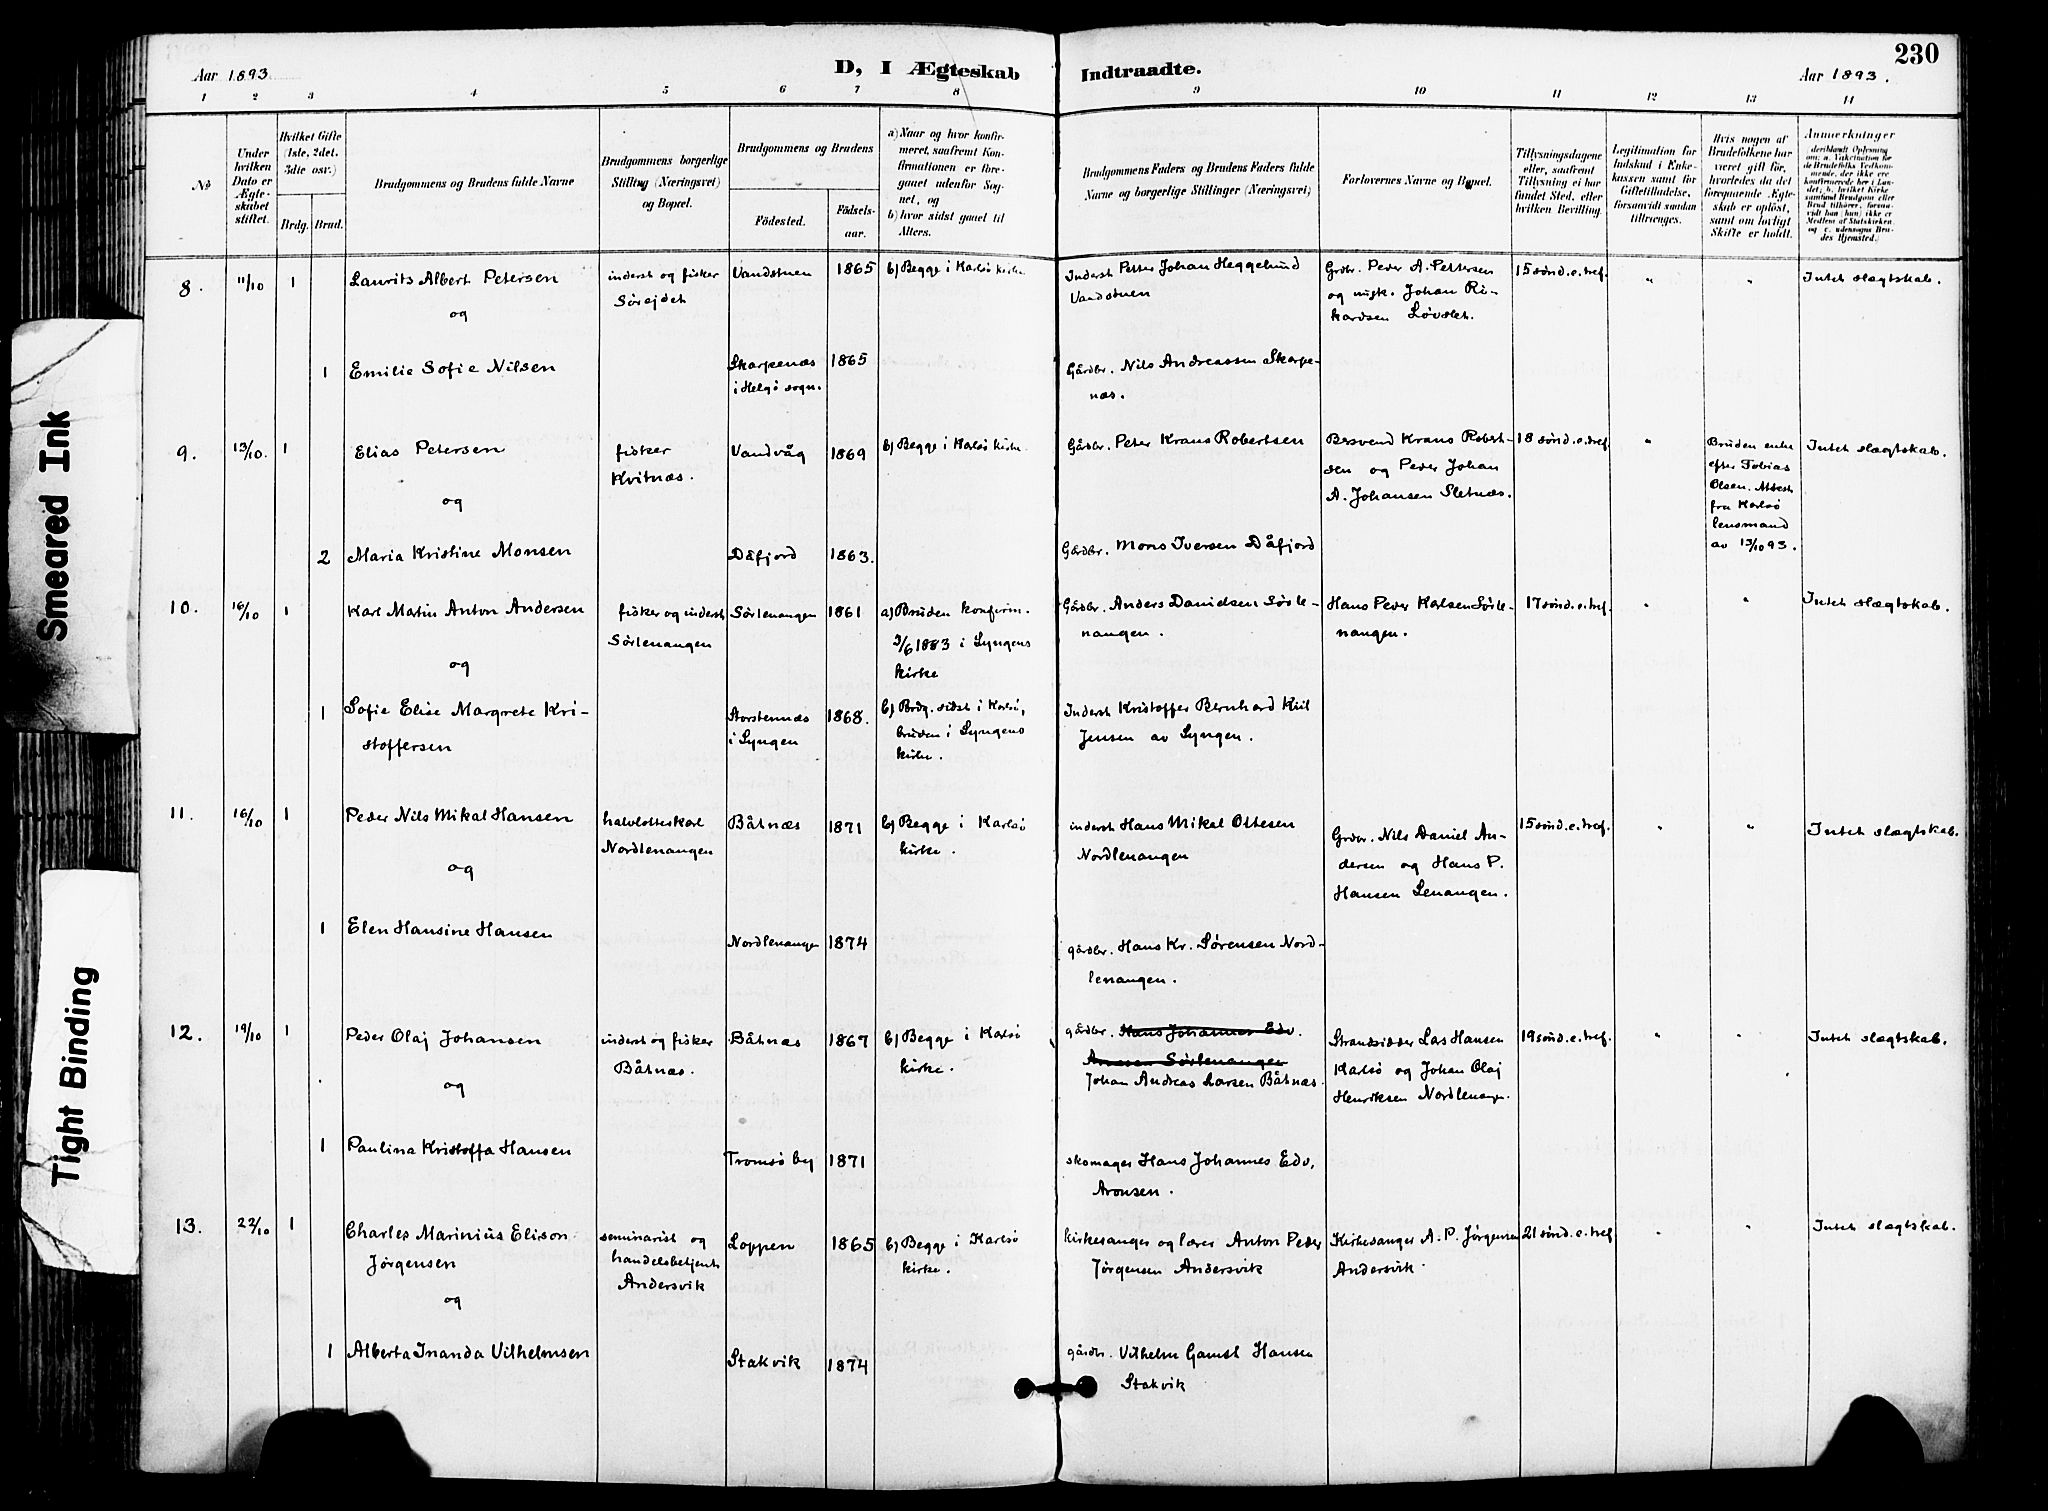 230
Aar 1893.
D, I Ægteskab
Indtraadte.
Aar 1893.
1 2 3 4 5 6 7 8 9 10 11 12 13 14
No
Under
hvilken
Dato er
Ægte-
skabet
stiftet.
Hvilket Gifte
(1ste, 2det,
3die osv.)
Brdg. Brud.
Brudgommens og Brudens fulde Navne
Brudgommens borgerlige
Stilling (Næringsvei)
og Bopæl.
Brudgommens og Brudens
Fødested.
Fødsels-
aar.
a) Naar og hvor konfir-
meret, saafremt Kon-
firmationen er fore-
gaaet udenfor Sog-
net, og
b) hvor sidst gaaet til
Alters.
Brudgommens Faders og Brudens Faders fulde
Navne og borgerlige Stillinger (Næringsvei)
Forlovernes Navne og Bopæl.
Tillysningsdagene
eller, saafremt
Tillysning ei har
fundet Sted, efter
hvilken Bevilling.
Legitimation for
Indskud i Enke-
kassen samt for
Giftetilladelse,
forsaavidt saadan
tiltrænges.
Hvis nogen af
Brudefolkene har
været gift før,
hvorledes da det
foregaaende Ægte-
skab er opløst,
samt om lovligt
Skifte er holdt.
Anmerkninger
deriblandt Oplysning
om: a. Vakcination for
de Brudefolks Vedkom-
mende, der ikke ere
konfirmerede her i Lan-
det; b. hvilket Kirke
samfund Brudgom eller
Brud tilhører, forsaa-
vidt han (hun) ikke er
Medlem af Statskirken,
og c. udensogns Bru-
des Hjemsted.)
8. 11/10 1 Laurits Albert Petersen
inderst og fisker
Sørejdet
Vandstuen 1865 b) Begge i Karlsö kirke
Inderst Petter Johan Heggelund
Vandstuen
Grdbr. Peder A. Pettersen
og ungk. Johan Ri-
kardsen Løvslet.
15 sønd. e. tref. " " Intet slægtskab.
og
1 Emilie Sofie Nilsen
Skarpenæs
i Helgö sogn.
1865
Gårdbr. Nils Andreassen Skarpe-
næs.
9. 13/10. 1 Elias Petersen
fisker
Kvitnæs.
Vandvåg 1869 b) Begge i Karlsö kirke.
Gårdbr. Peter Krans Robertsen
Bersvend Krans Robert-
sen og Peder Johan
A. Johansen Sletnæs.
18 sønd. e. tref. "
Bruden enke
efter Tobias
Olsen. Attest
fra Karlsö
lensmand
av 13/10 93.
Intet slægtskab.
og
2 Maria Kristine Monsen
Dåfjord 1863.
Gårdbr. Mons Iversen Dåfjord
10. 16/10 1 Karl Martin Anton Andersen
fisker og inderst
Sørlenangen
Sørlenangen 1861
a) Bruden konfirm.
3/6 1883 i Lyngens
kirke
Gårdbr. Anders Danielsen Sørle-
nangen.
Hans Peder Karlsen Sørle-
nangen.
17 sønd. e. tref. " " Intet slægtskab.
og
1 Sofie Elise Margrete Kri-
stoffersen
Storstennæs
i Lyngen
1868.
b) Brdg. sidst i Karlsö,
bruden i Lyngens
kirke.
Inderst Kristoffer Bernhard Kiil
Jensen av Lyngen.
11. 16/10 1 Peder Nils Mikal Hansen
halvlotteskarl
Nordlenangen
Båtnæs 1871
b) Begge i Karlsö
kirke.
inderst Hans Mikal Ottesen
Nordlenangen
Grdbr. Nils Daniel An-
dersen og Hans P.
Hansen Lenangen.
15 sønd. e. tref. " " Intet slægtskab.
og
1 Elen Hansine Hansen
Nordlenangen 1874
gårdbr. Hans Kr. Sørensen Nord-
lenangen.
12. 19/10 1 Peder Olaj Johansen
inderst og fisker
Båtnæs.
Båtnæs 1867
b) Begge i Karlsö
kirke.
gårdbr. Hans Johannes Edv.
Aronsen Sørlenangen
Johan Andreas Larsen Båtnæs.
Strandsidder Lars Hansen
Karlsö og Johan Olaj
Henriksen Nordlenangen.
19 sønd. e. tref. " " Intet slægtskab.
og
1 Paulina Kristoffa Hansen
Tromsö by 1871
skomager Hans Johannes Edv.
Aronsen.
13. 22/10 1 Charles Marinius Elison
Jørgensen
seminarist og
handelsbetjent
Andersvik
Loppen 1865
b) Begge i Karlsö
kirke.
kirkesanger og lærer Anton Peder
Jørgensen Andersvik
Kirkesanger A. P. Jørgensen
Andersvik.
21 sønd. e. tref " " Intet slægtskab.
og
1 Alberta Inanda Vilhelmsen
Stakvik 1874
gårdbr. Vilhelm Gamst Hansen
Stakvik
Smeared Ink
Tight Binding